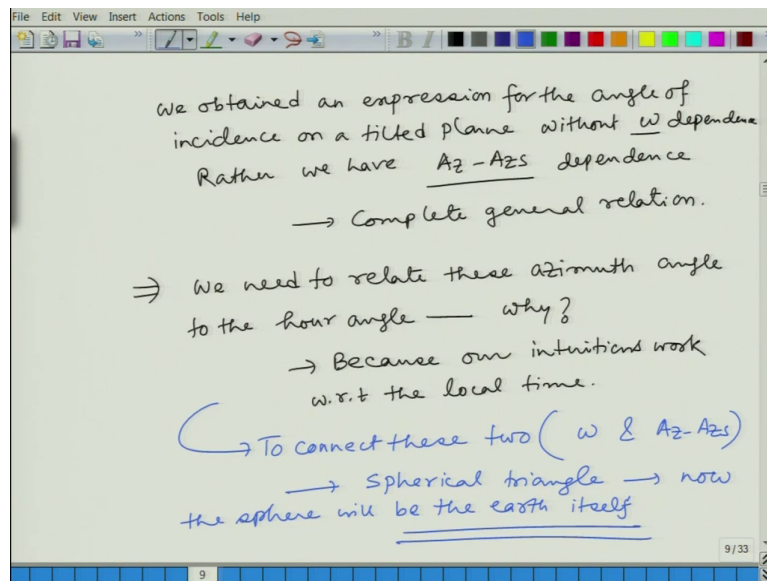 File Edit View Insert Actions Tools Help
we obtained an expression for the angle of
incidence on a tilted planne without ω dependence
Rather we have Az - Azs dependence
→ Complete general relation.
⇒ we need to relate these azimuth angle
to the hour angle — why?
→ Because our intuitions work
w.r.t the local time.
→ To connect these two ( ω & Az-Azs)
→ Spherical triangle → now
the sphere will be the earth itself
9/33
9